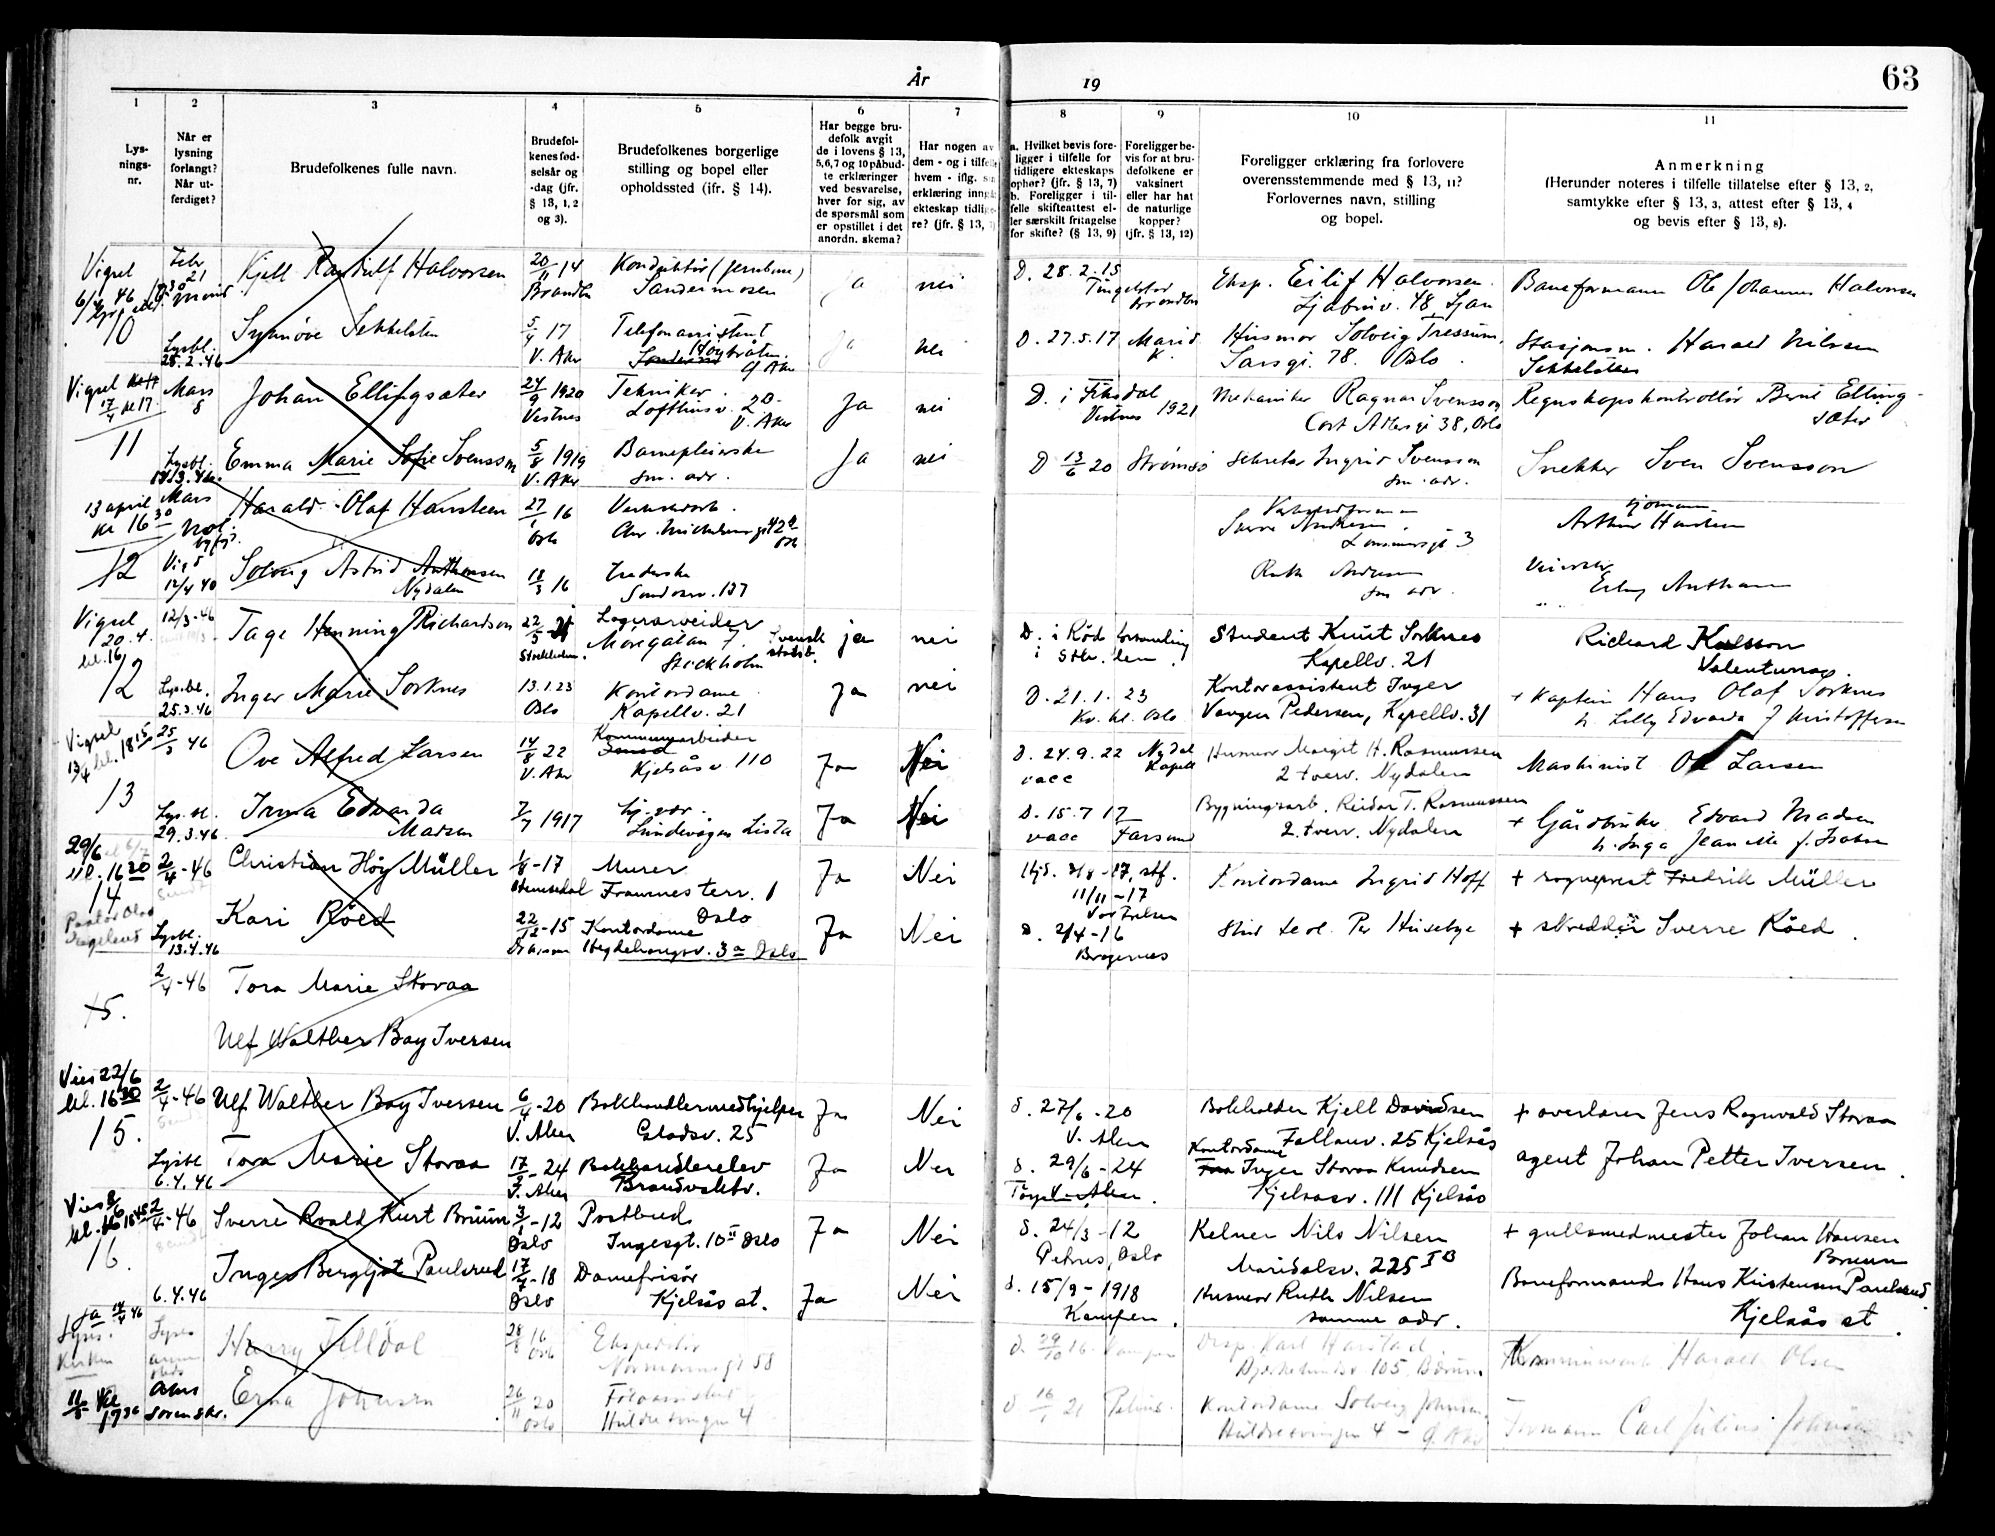 År 19
63
1 2 3 4 5 6 7 8 9 10 11
Lys-
nings-
nr.
Når er
lysning
forlangt?
Når ut-
ferdiget?
Brudefolkenes fulle navn.
Brudefol-
kenes fød-
selsår og
-dag (jfr.
§ 13, 1, 2
og 3).
Brudefolkenes borgerlige
stilling og bopel eller
opholdssted (jfr. § 14).
Har begge bru-
defolk avgit
de i lovens § 13,
5,6,7 og 10 påbud-
te erklæringer
ved besvarelse,
hver for sig, av
de spørsmål som
er opstillet i det
anordn. skema?
Har nogen av
dem - og i tilfelle
hvem - iflg.
erklæring inngått
ekteskap tidlige-
re? (jfr. § 13,
a. Hvilket bevis fore-
ligger i tilfelle for
tidligere ekteskaps
ophør? (jfr. § 13, 7)
b. Foreligger i til-
felle skifteattest el-
ler særskilt fritagelse
for skifte? (§ 13, 9)
Foreligger be-
vis for at bru-
defolkene er
vaksinert
eller har hat
de naturlige
kopper?
(jfr. § 13, 12)
Foreligger erklæring fra forlovere
overensstemmende med § 13, 11?
Forlovernes navn, stilling
og bopel.
Anmerkning
(Herunder noteres i tilfelle tillatelse efter § 13, 2,
samtykke efter § 13, 3, attest efter § 13, 4
og bevis efter § 13, 8).
Vigsel
6/4 46
10
Febr
21
Kjell Randulf Halvorsen
20/11 14
Brandbu
Konduktør (jernbane)
Sandermosen
Ja
nei
D. 28.2.15
Tingelstad
Brandbu
Eksp. Eilif Halvorsen.
Ljabruv. 48, Ljan
Baneformann Ole Johannes Halvorsen
Lysbl.
28.2.46
Synnøve Sekkelsten
5/4 17
V. Aker
Telefonassistent
Høybråten.
Ø. Aker
Ja
nei
D. 27.5.17 Marid
K.
Husmor Solveig Tressum,
Sarsgt. 78. Oslo.
Stasjonsm. Harald Nilsen
Sekkelsten
Vigsel
17/4 kl 17
11
Mars
8
Johan Ellingsæter
24/9 1920
Vestnes
Tekniker.
Lofthusv. 20.
V. Aker
Ja
nei
D. i Fiksdal
Vestnes 1921
Mekaniker Ragnar Svensson
Cort Adlersgt 38, Oslo
Regnskapskontrollør Bernt Elling-
sæter
Lysbl.
Emma Marie Sofie Svensson
5/8 1919
V. Aker
Barnepleierske
sm. adr.
Ja
nei
D 13/6 20 Strømsø
Sekretær Ingrid Svensson
sm. adr.
Snekker Sven Svensson
13 april
kl 16 30
12
Mars
Harald Olaf Hansteen
27/1 16
Oslo
Verkstedarb.
Chr. Michelsensgt 42
Oslo
3
Arthur
12/4 40
Solveig Astrid Anthonsen
Nydalen
18/3 16
137
Ruth Andersen
sm adr.
Vigsel
20.4.
kl. 16
12
12/3-46
Tage Henning Richardson
22/5
Stockholm.
Lagerarbeider
Moregatan 7.
Stockholm
Svensk
statsb.
ja
nei
D. i Röde forsamling
i Sth.
Student Knut Sorknes
Kapellv. 21
Richard Kalsson
Lysbl.
25.3.46
Inger Marie Sorknes
13.1.23
Oslo
Kontordame
Kapellv. 21
Ja
nei
D. 21.1.23
Oslo
Kontorassistent Inger
Vangen Pedersen, Kapellv. 31
+ Kaptein Hans Olaf Sorknes
Vigsel
13/4 kl. 18 15
13
25/3 46
Ove Alfred Larsen
14/8 22
V. Aker
Kommunearbeider
Kjelsåsv 110
Ja
Nei
D. 24.9.22 Nydal
vacc Kapell
Husmor Margit H. Rasmussen
2 tverv. Nydalen
Maskinist Ole Larsen
Lys. bl.
29.3.46
Irma Edvarda
Madsen
7/7 1917
Lundevågen Lista
Ja
Nei
D. 15.7 17
vacc Farsund
Bygningsarb. Reidar T. Rasmussen
2. tverv. Nydalen
+ Gårdbruker Edvard Madsen
29/6
kl. 16 30
14
2/4-46
Christian Höy Müller
1/8-17
Hemsedal
Murer
Framnes terr. 1
Oslo
Ja
Nei
Kontordame Ingrid Hoff
+ sogneprest Fredrik Müller
Pastor Olav
Lysbl.
13.4.46
Kari Röed
22/12-15
Kontordame
Hegdehaugsv. 3a Oslo
Ja
Nei
D. 2/4-16
Bragernes
Stud Per Huseby
+ skredder Sverre Röed.
15.
2/4-46
Tora Marie Storaa
Ulf Walther Bay Iversen
Vies 22/6
kl. 16 30
15.
2/4-46
Ulf Walther Bay Iversen
6/4-20
V. Aker
Bokhandlermedhjelper
Gladsv. 25
Ja
Nei
d. 27/6-20
V. Aker
Bokholder Kjell Davidsen
Fallanv. 25 Kjelsås
+ overlærer Jens Ragnvald Storaa
Lysbl
6.4.46
Tora Marie Storaa
17/3-24
V. Aker
Bokhandlerelev
Brandvaktv.
Ja
Nei
d. 29/6-24
V. Aker.
Kontordame
Inger Storaa Knudsen
Kjelsasv. 111 Kjelsås
agent Johan Petter Iversen.
Vies 8/6
kl. 18 45
16.
2/4-46
Sverre Roald Kurt Bruun
3/1-12
Oslo
Postbud
Ingesgt. 10 II Oslo
Ja
Nei
d. 24/3-12
Petrus, Oslo
Kelner Nils Nilsen
Maridalsv. 225 I B
+ gullsmedmester Johan Hansen
Bruun
6.4.46
Inger Bergljot Paulsrud
17/7-18
Oslo
Damefrisör
Kjelsås st.
Ja
Nei
d. 15/9-1918
Kampen.
Husmor Ruth Nilsen
samme adr.
Baneformand Hans Kristensen Paulsrud.
Kjelsås st.
Ja 14/4 46
Lyses.
Kirken
Lyses
Harry Filldal
28/8 16
Oslo
Ekspeditör
Normannsgt 58
d. 29/10 16.
Disp. Karl Harstad
105 Bærum
Harald Olsen
11/5 Kl
17 30
Erna Johnsen
26/11 20
Oslo
Huldresvingen 4
d 16/1 21 Petrus.
Kontordame Solveig Johnsen,
Huldresvingen 4 - Ø. Aker
Formann Carl Julius Johnsen